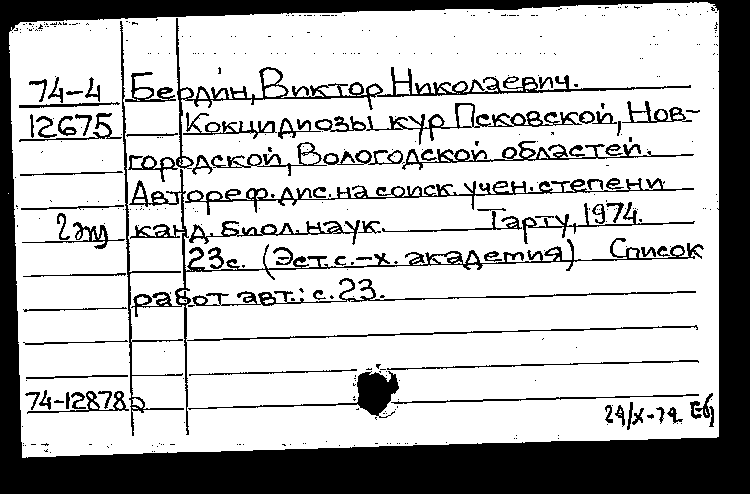 74-4 Бердин, Виктор Николаевич.
12675 Кокцидиозы кур Псковской, Нов-
городской, Вологодской областей.
Автореф. дис. на соиск. учен. степени
2 экз канд. биол. наук. Тарту, 1974.
23с. (Эст. с.-х. академия) Список
работ авт.: с. 23.
74-12878